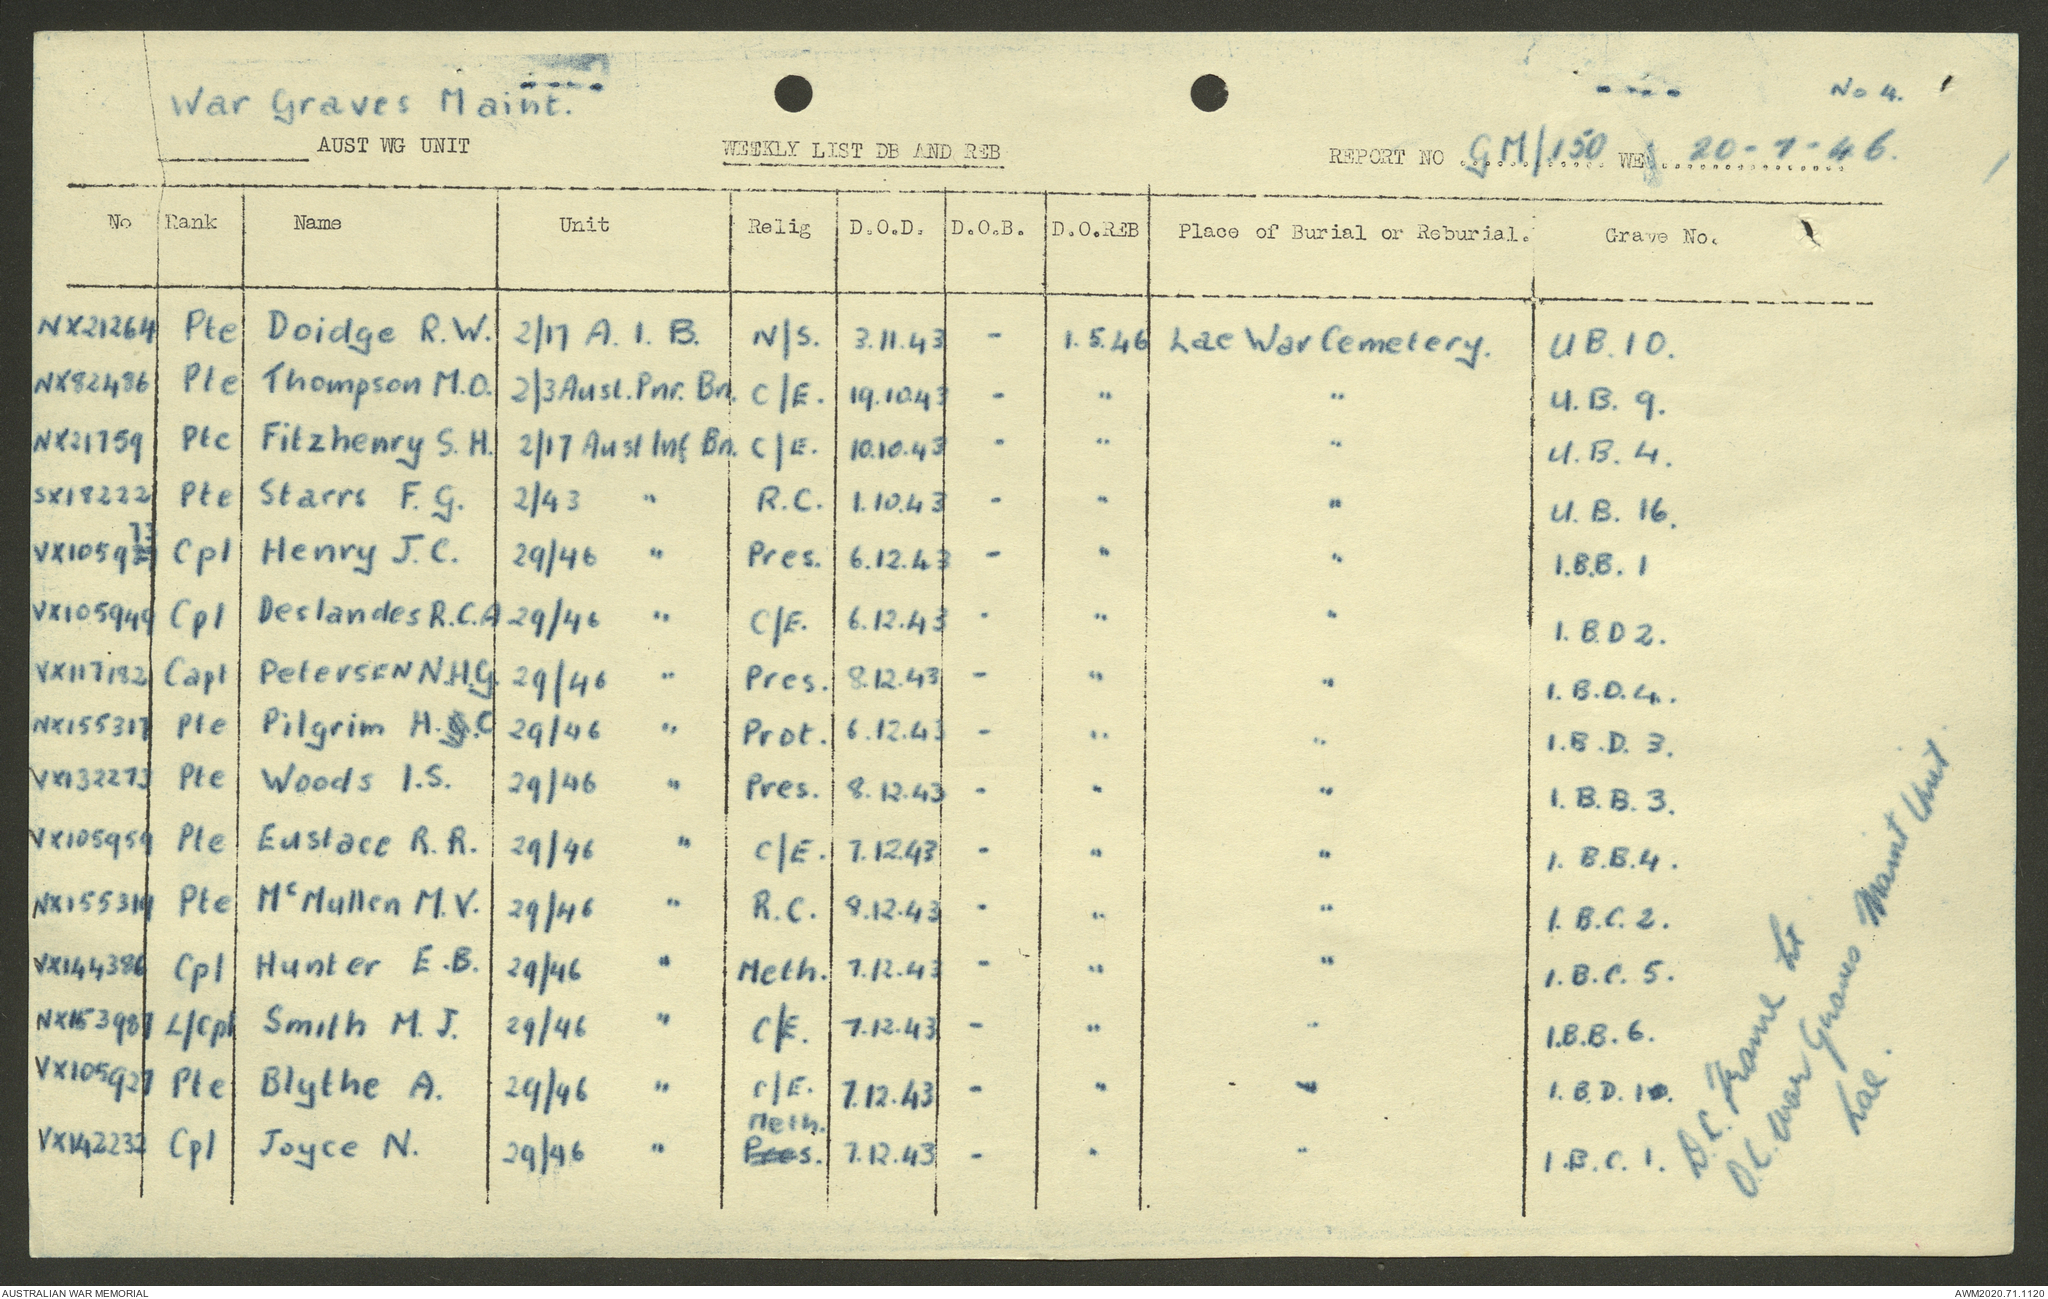 No 4.
War Graves Maint.
AUST WG UNIT WEEKLY LIST DB AND REB REPORT NO GM/150 WE 20-7-46.
No Rank Name Unit Relig D.O.D. D.O.B. D.O.REB Place of Burial or Reburial. Grave No.
NX21264 Pte Doidge R.W. 2/17 A. I. B. N/S. 3.11.43 - 1.5.46 Lae War Cemetery. U B. 10.
NX82486 Pte Thompson M.O. 2/3 Aust. Pnr. Bn. C/E. 19.10.43 - " " U. B. 9.
NX21759 Pte Fitzhenry S. H. 2/17 Aust Inf Bn. C/E. 10.10.43 - " " U. B. 4.
SX18222 Pte Starrs F. G. 2/43 " R.C. 1.10.43 - " " U. B. 16.
VX105973 Cpl Henry J. C. 29/46 " Pres. 6.12.43 - " " 1.B.B. 1
VX105949 Cpl Deslandes R.C.A 29/46 " C/E. 6.12.43 - " " 1. B. D 2.
VX117182 Capt Petersen N.H.G. 29/46 " Pres. 8.12.43 - " " 1. B.D. 4.
NX155317 Pte Pilgrim H. C 29/46 " Prot. 6.12.43 - " " 1. B .D. 3.
VX132273 Pte Woods I.S. 29/46 " Pres. 8.12.43 - " " 1. B. B. 3.
VX105959 Pte Eustace R. R. 29/46 " C/E. 7.12.43 - " " 1. B.B.4.
NX155314 Pte McMullen M. V. 29/46 " R.C. 8.12.43 - " " 1. B.C. 2.
VX144386 Cpl Hunter E.B. 29/46 " Meth. 7.12.43 - " " 1. B.C. 5.
NX153987 L/Cpl Smith M. J. 29/46 " C/E. 7.12.43 - " " 1.B.B. 6.
VX105927 Pte Blythe A. 29/46 " C/E. 7.12.43 - " " 1. B.D. 10.
VX142232 Cpl Joyce N. 29/46 " Meth. Pres. 7.12.43 - " " 1. B. C. 1.
D. C. Frame Lt
O.C. War Graves Maint Unit
Lae.
AUSTRALIAN WAR MEMORIAL AWM2020.71.1120